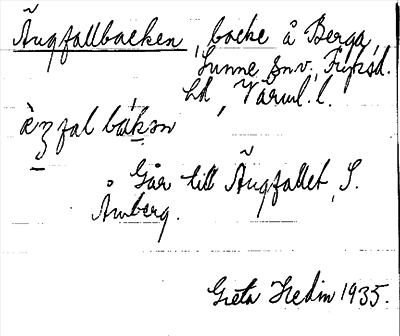 Ängfallbacken, backe å Berga,
Sunne snv., Fryksd.
hd, Värml. l.
Går till Ängfallet, S.
Åmberg.
Greta Hedin 1935.